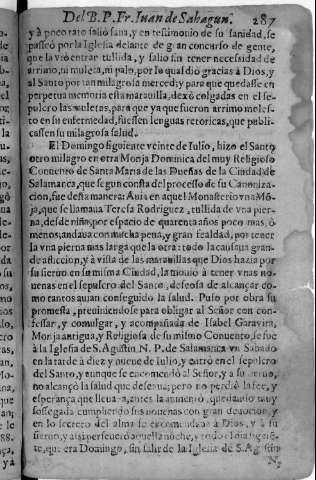 Del B. P. Fr. Iuan de Sahagun. 287
y à poco rato saliò sana, y en testimonio de su sanidad, se
passeò por la Iglesia delante de gran concurso de gente,
que la viò entrar tullida, y salir sin tener necessidad de
arrimo, ni muleta, ni palo, por lo qual diò gracias à Dios, y
al Santo por tan milagrosa merced; y para que quedasse en
perpetua memoria esta maravilla, dexò colgadas en el se-
pulcro las muletas, para que ya que fueron arrimo moles-
to en su enfermedad, fuessen lenguas retoricas, que publi-
cassen su milagrosa salud.
El Domingo siguiente veinte de Iulio, hizo el Santo
otro milagro en otra Monja Dominica del muy Religioso
Convento de Santa Maria de las Dueñas de la Ciudad de
Salamanca, que segun consta del processo de su Canoniza-
cion, fue desta manera: Avia en aquel Monasterio vna Mō-
ja, que se llamava Teresa Rodriguez, tullida de vna pier-
na, desde niña, por espacio de quarenta años poco mas, ò
menos; andava con mucha pena, y gran fealdad, por tener
la vna pierna mas larga que la otra: todo la causava gran-
de afliccion, y à vista de las maravillas que Dios hazia por
su siervo en su misma Ciudad, la moviò à tener vnas no-
uenas en el sepulcro del Santo, deseosa de alcançar co-
mo tantos avian conseguido la salud. Puso por obra su
promessa, previniendose para obligar al Señor con con-
fessar, y comulgar, y acompañada de Isabel Garavira,
Monja antigua, y Religiosa de su mismo Convento, se fue
à la Iglesia de S. Agustin N. P. de Salamanca vn Sabado
en la tarde à diez y nueve de Iulio, y entrò en el sepulcro
del Santo, y aunque se encomendò al Señor, y à su siervo,
no alcançò la salud que deseava; pero no perdiò la fee, y
esperança que llevava, antes la aumentò, quedando muy
sossegada cumpliendo sus novenas con gran devocion, y
en lo secreto del alma se encomendava à Dios, y à su
siervo, y assi perseverò aquella noche, y todo
te, que era Domingo, sin salir de la Iglesia de S. Agustin
N.